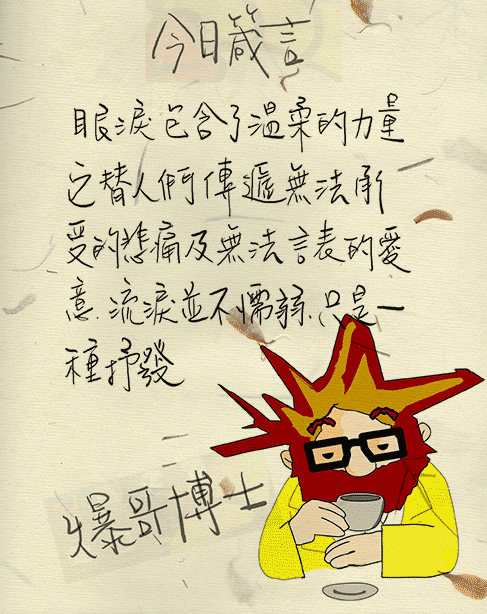 今日箴言
眼淚包含了溫柔的力量
它替人們傳遞無法承
受的悲痛及無法言表的愛
意.流淚並不懦弱.只是一
種抒發
爆哥博士